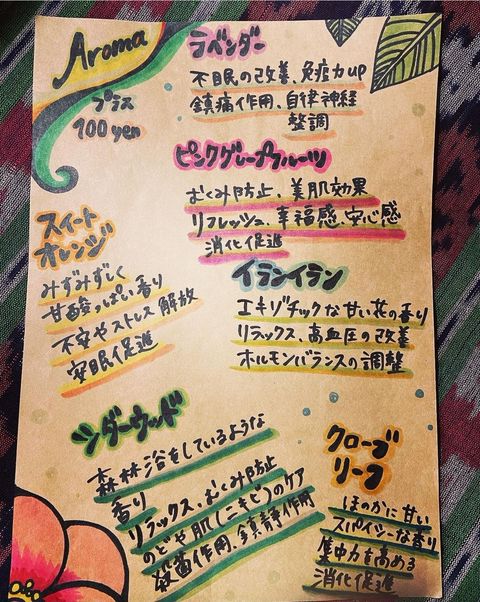 Aroma
プラス
100yen
ラベンダー
不眠の改善、免疫力up
鎮痛作用、自律神経
整調
ピンクグレープフルーツ
むくみ防止、美肌効果
リフレッシュ、幸福感、安心感
消化促進
スイート
オレンジ
みずみずしく
甘酸っぱい香り
不安やストレス解放
安眠促進
イランイラン
エキゾチックな甘い花の香り
リラックス、高血圧の改善
ホルモンバランスの調整
シダーウッド
森林浴をしているような
香り
リラックス、むくみ防止
のどや肌(ニキビ)のケア
殺菌作用、鎮静作用
クローブ
リーフ
ほのかに甘い
スパイシーな香り
集中力を高める
消化促進